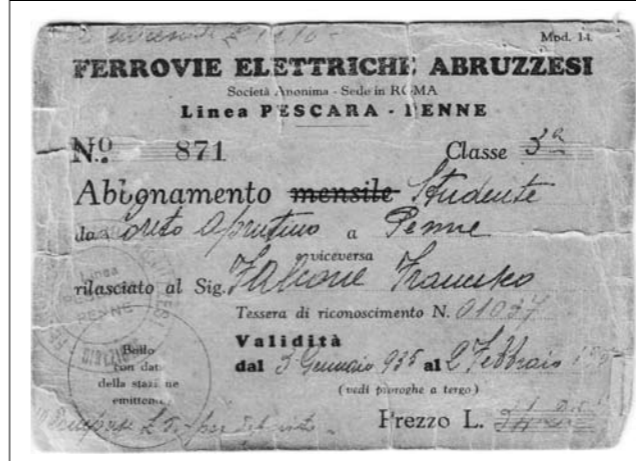 Mod. 14
FERROVIE ELETTRICHE ABRUZZESI
Società Anonima - Sede in ROMA
Linea PESCARA - PENNE
N.º 871 Classe 3ª
Abbonamento mensile Studente
da Loreto Aprutino a Penne
viceversa
rilasciato al Sig. Falcone Francesco
Tessera di riconoscimento N. 01037
Linea
PESCARA
PENNE
Validità
dal 3 Gennaio 935 al 2 Febbraio
(vedi proroghe a tergo)
Bollo
con data
della stazione
emittente
Prezzo L.